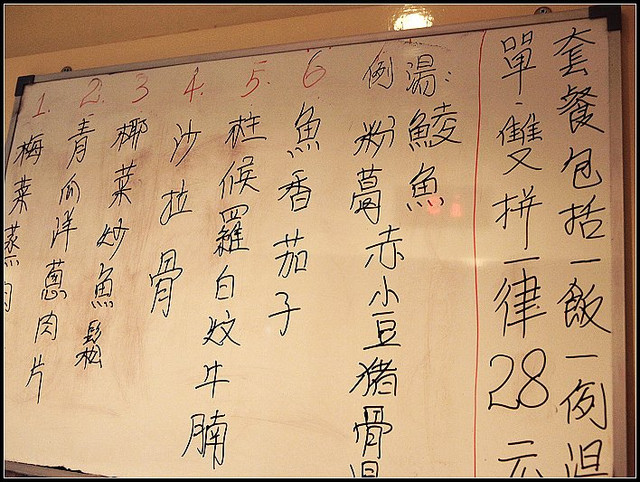 套餐包括一飯一例湯
單.雙拼一律28元
例湯:
鯪魚
粉葛赤小豆猪骨湯
6 魚香茄子
5. 柱候羅白炆牛腩
4. 沙拉骨
3 椰菜炒魚鬆
2. 青瓜洋蔥肉片
1. 梅菜蒸肉